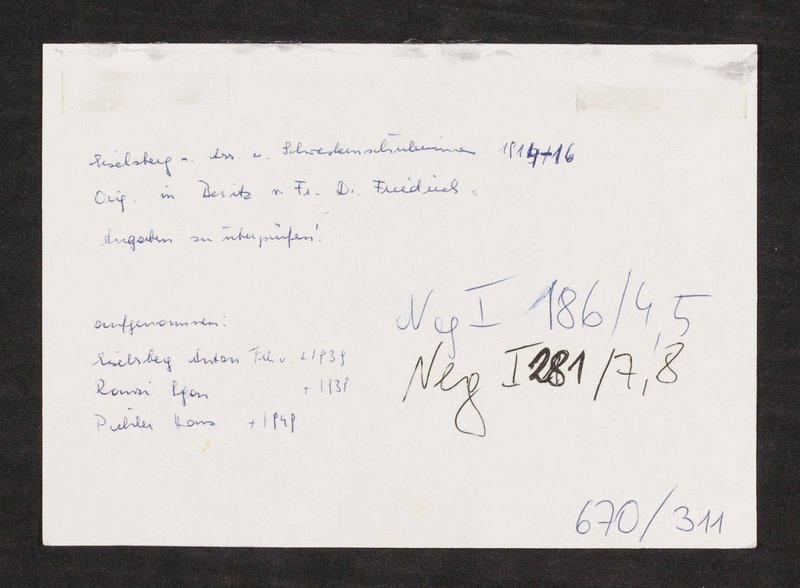 Eiselsberg u. Ass. u. Schwesternschülerinnen 1914+16
Orig. in Besitz v Fr. Dr. Friedrich.
Angaben zu überprüfen!
aufgenommen:
Eiselsberg Anton Frh v. +1939
Ranzi Egon +1939
Pichler Hans +1949
Neg I 186/4,5
Neg I 281/7,8
670/311